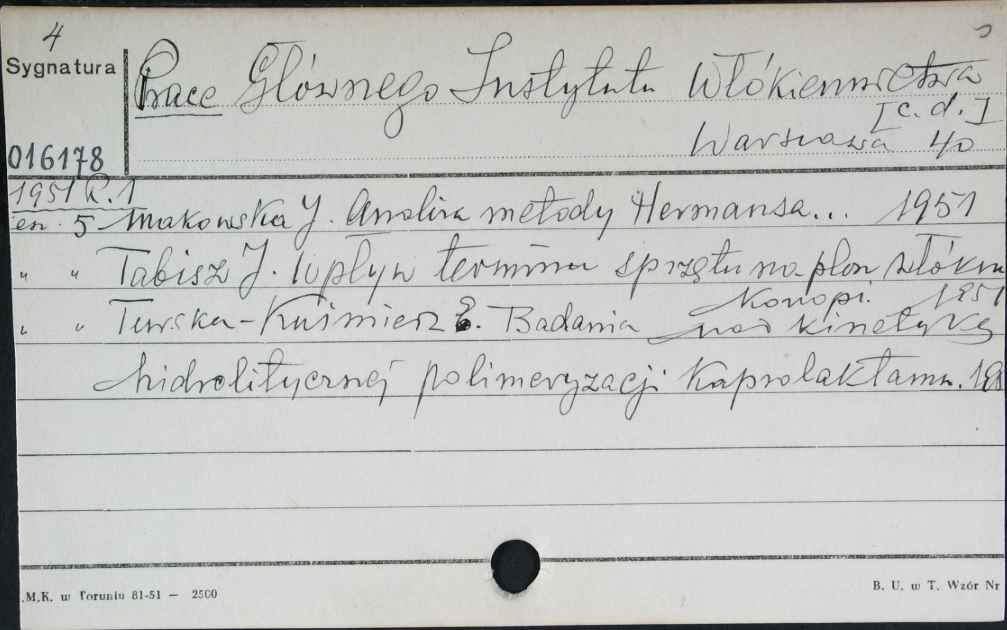 4
Sygnatura
Prace Głównego Instytutu Włókiennictwa
[c.d.]
016178
Warszawa 40
1951 R.1
en. 5 Makowska J. Analiza metody Hermansa... 1951
" " Tabisz J. Wpływ terminu sprzętu na plon włókna
Konopi. 1951
" " Turska-Kuśmierz E. Badania nad kinetyką
hidrolitycznej polimeryzacji Kaprolaktamu. 19
.M.K. w Toruniu 81-51 — 2500
B. U. w T. Wzór Nr